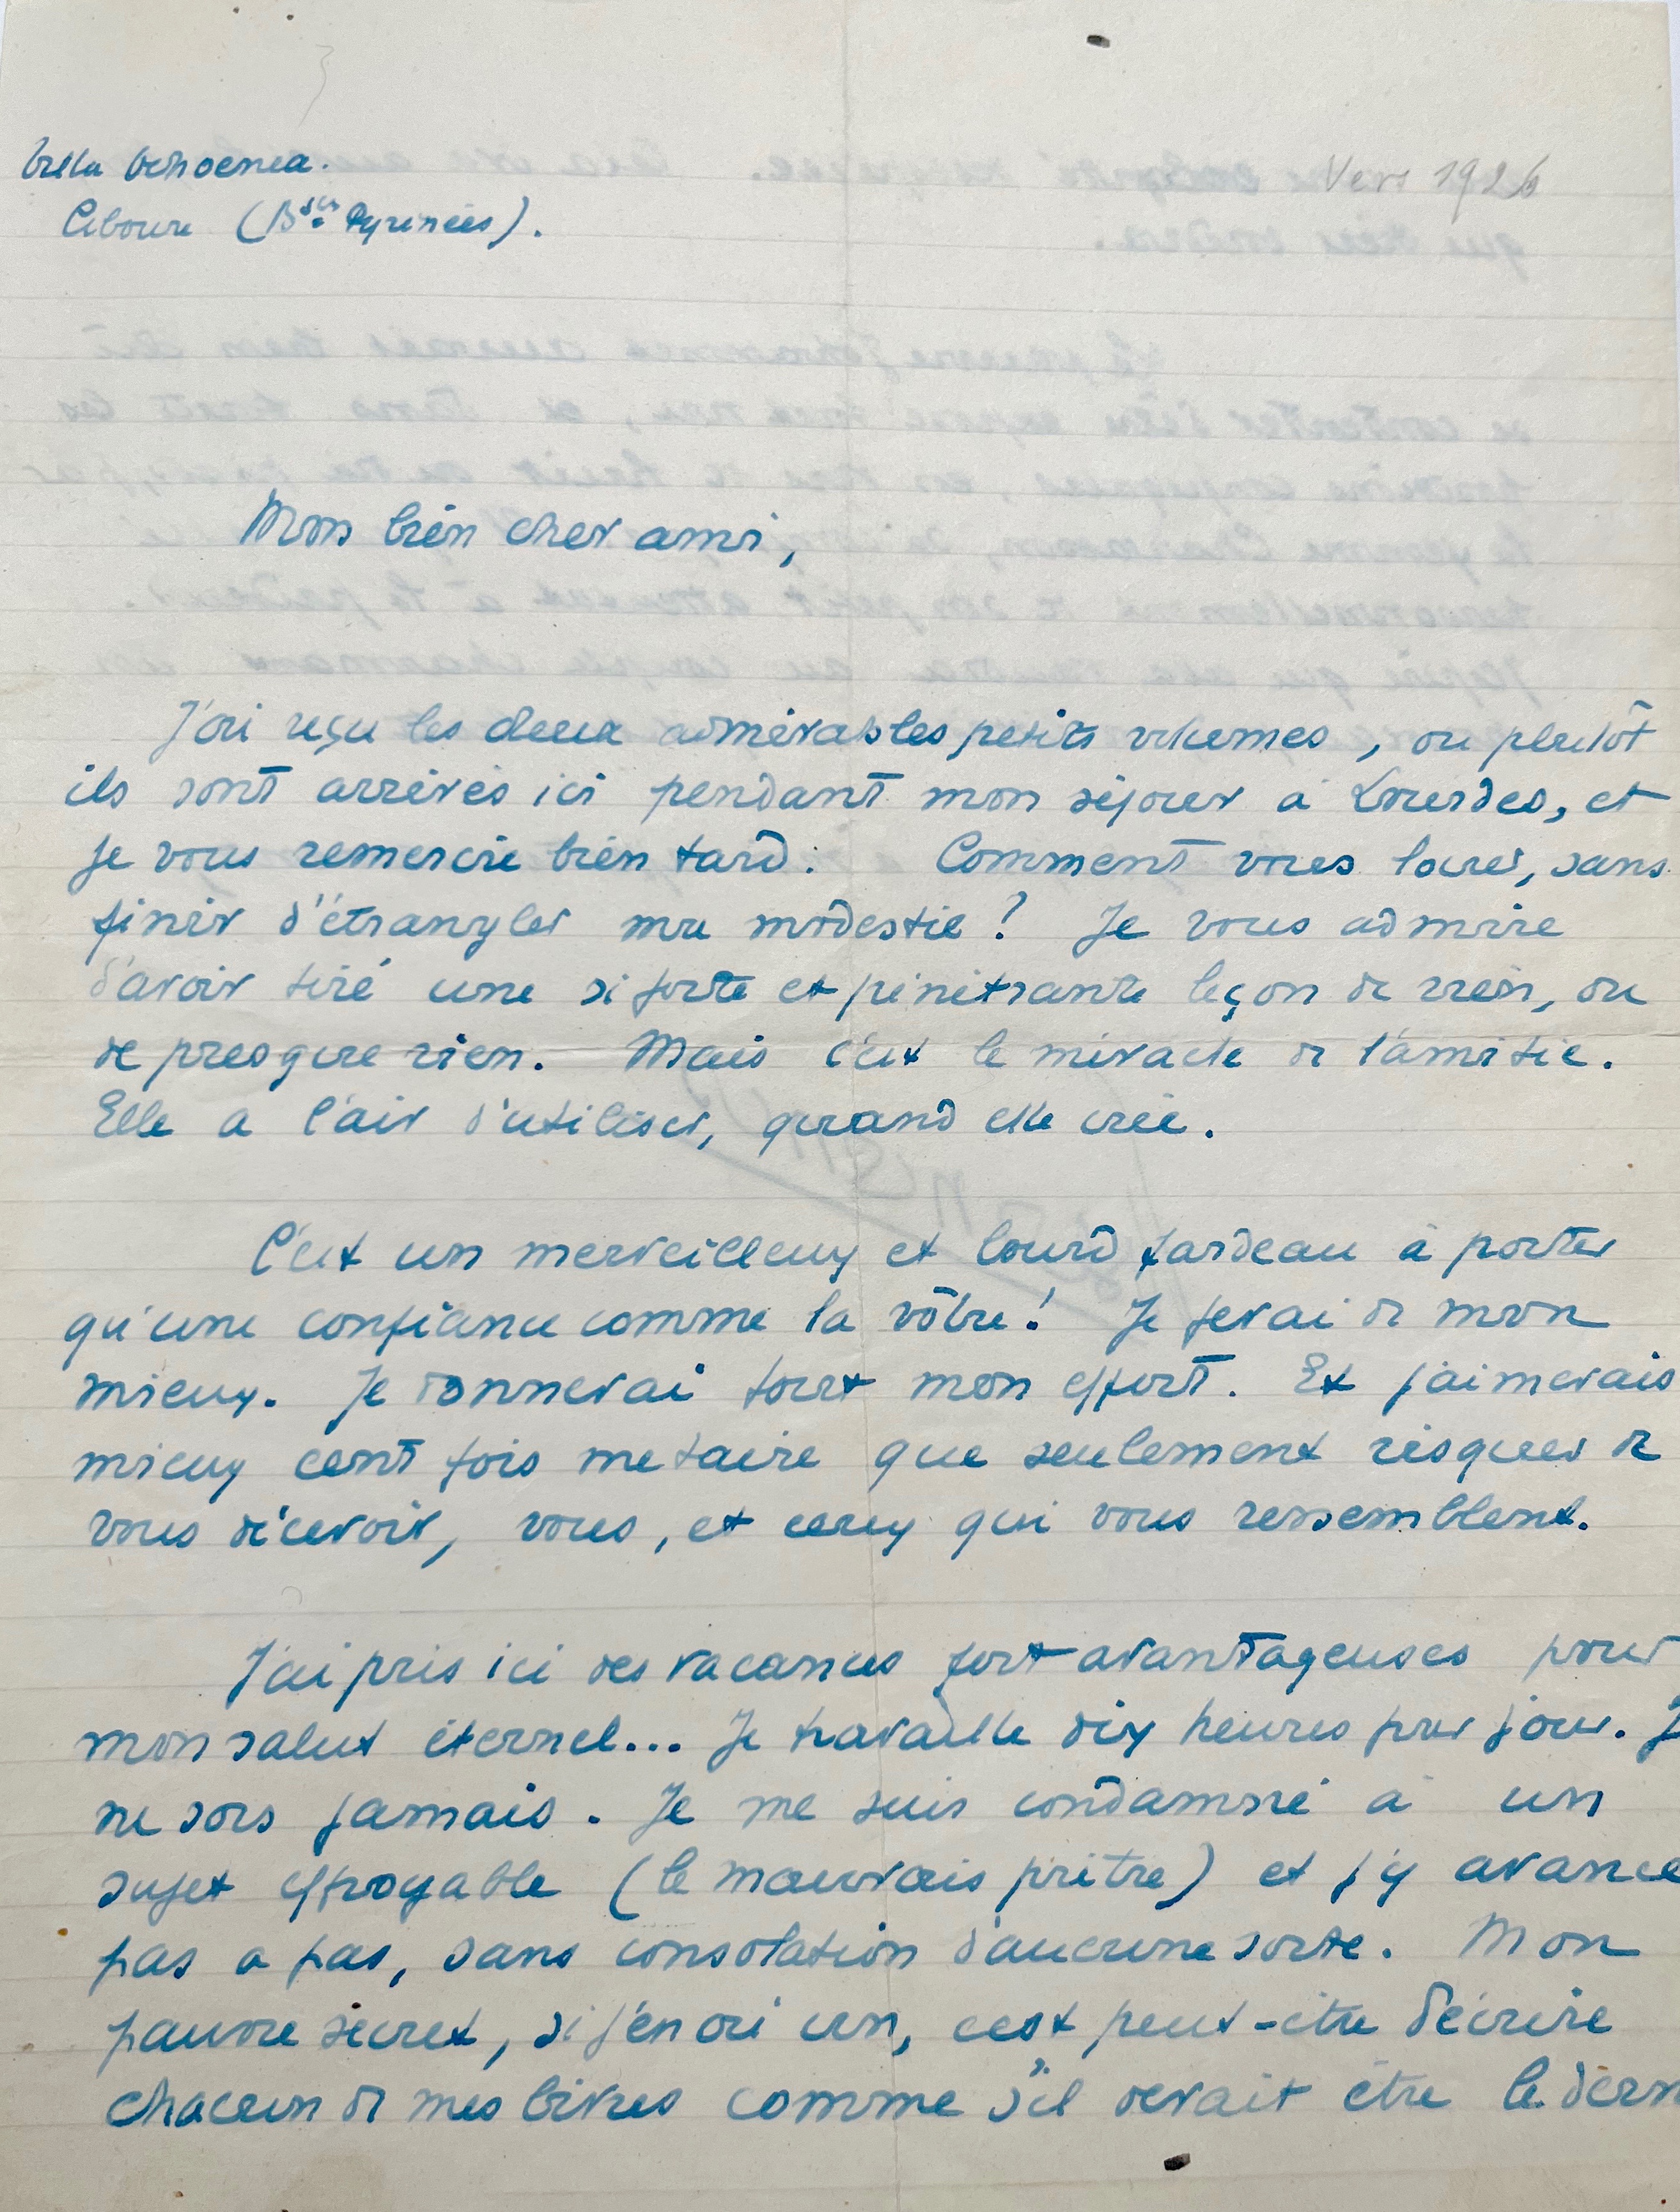 Villa Ochoenea.
Vers 1926
Ciboure (Bses Pyrénées).
Mon bien cher ami,
J'ai reçu les deux admirables petits volumes, ou plutôt
ils sont arrivés ici pendant mon séjour à Lourdes, et
je vous remercie bien tard. Comment vous louer, sans
finir d'étrangler ma modestie ? Je vous admire
d'avoir tiré une si forte et pénétrante leçon de rien, ou
de presque rien. Mais c'est le miracle de l'amitié.
Elle a l'air d'utiliser, quand elle crée.
C'est un merveilleux et lourd fardeau à porter
qu'une confiance comme la vôtre ! Je ferai de mon
mieux. Je donnerai tout mon effort. Et j'aimerais
mieux cent fois me taire que seulement risquer de
vous décevoir, vous, et ceux qui vous ressemblent.
J'ai pris ici des vacances fort avantageuses pour
mon salut éternel... Je travaille dix heures par jour. J
ne sors jamais. Je me suis condamné à un
sujet effroyable (le mauvais prêtre) et j'y avance
pas a pas, sans consolation d'aucune sorte. Mon
pauvre secret, si j'en ai un, c'est peut-être d'écrire
chacun de mes livres comme s'il devait être le dern